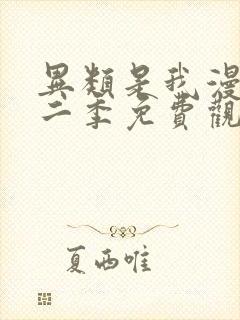 異類是我漫
二季免費觀
夏西唯